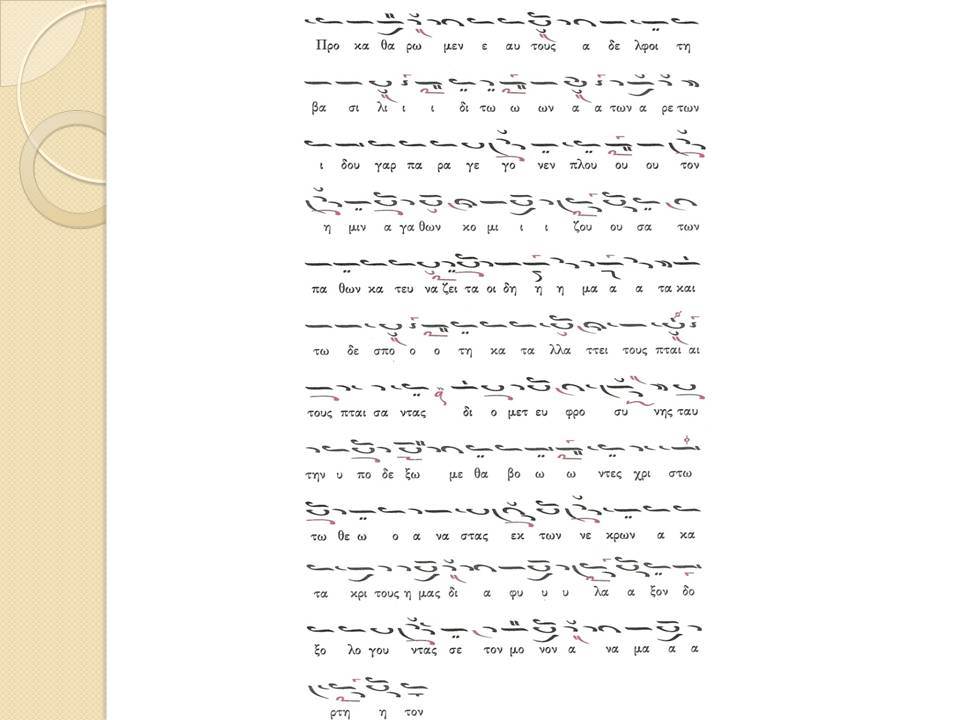 Προ κα θα ρω μεν ε αυ τους α δε λφοι τη
βα σι λι ι ι δι τω ω ων α α των α ρε των
ι δου γαρ πα ρα γε γο νεν πλου ου ου τον
η μιν α γα θων κο μι ι ι ζου ου σα των
πα θων κα τευ να ζει τα οι δη η η μα α α τα και
τω δε σπο ο ο τη κα τα λλα ττει τους πται αι
τους πται σα ντας δι ο μετ ευ φρο συ νης ταυ
την υ πο δε ξω με θα βο ω ω ντες χρι στω
τω θε ω ο α να στας εκ των νε κρων α κα
τα κρι τους η μας δι α φυ υ υ λα α ξον δο
ξο λο γου ντας σε τον μο νον α να μα α α
ρτη η τον